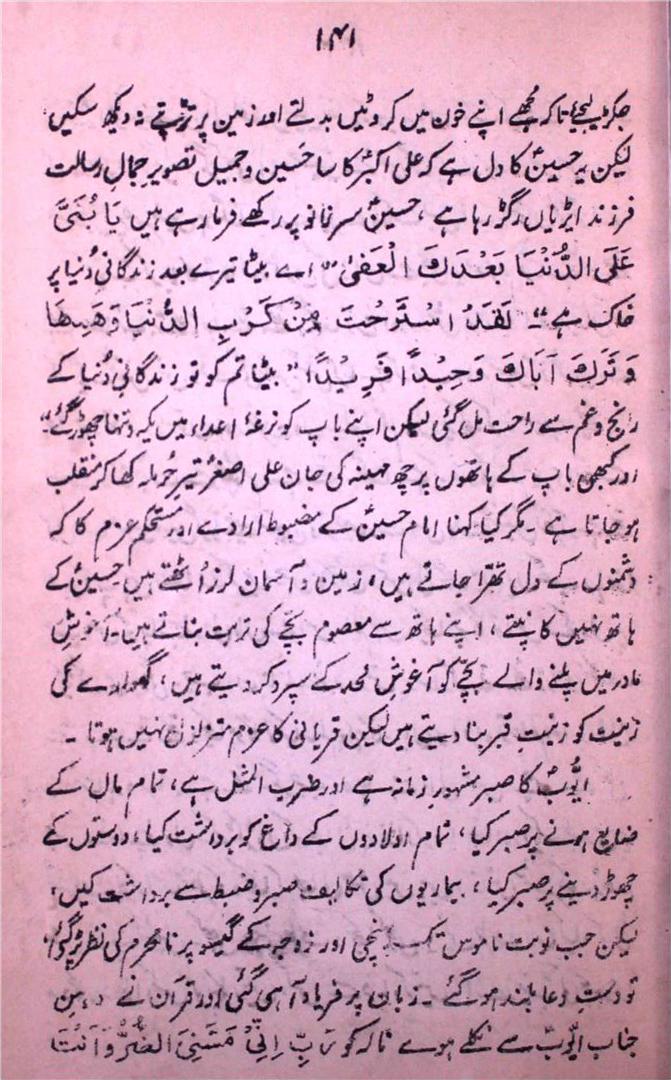 ۱۴۱
جکڑ لیجئے تاکہ مجھے اپنے خون میں کروٹیں بدلتے اور زمین پر تڑپتے نہ دیکھ سکیں
لیکن یہ حسینؑ کا دل ہے کہ علی اکبرؑ کا سا حسین و جمیل تصویر جمالِ رسالت
فرزند ایڑیاں رگڑ رہا ہے ، حسینؑ سر زانو پر رکھے فرما رہے ہیں یَا بُنَیَّ
عَلَی الدُّنْیَا بَعْدَكَ الْعَفیٰ " اے بیٹا تیرے بعد زندگانی دُنیا پر
خاک ہے "۔ لَقَدُ اسْتَرَحْتَ مِنْ کَرْبِ الدُّنْیَا وَهَمِّهَا
وَتَرَكَ اَبَاكَ وَحِیْدًا فَرِیْدًا " بیٹا تم کو تو زندگانی دُنیا کے
رنج و غم سے راحت مل گئی لیکن اپنے باپ کو نرغۂ اعداء میں یکہ و تنہا چھوڑ گئے"۔
اور کبھی باپ کے ہاتھوں پر چھ مہینہ کی جان علی اصغرؑ تیرِ حُرملہ کھا کر منقلب
ہو جاتا ہے ۔ مگر کیا کہنا امام حسینؑ کے مضبوط ارادے اور مستحکم عزم کا کہ
دشمنوں کے دل تھرّا جاتے ہیں ، زمین و آسمان لرز اُٹھتے ہیں حسینؑ کے
ہاتھ نہیں کانپتے ، اپنے ہاتھ سے معصوم بچے کی تربت بناتے ہیں۔ آغوشِ
مادر میں پلنے والے بچّے کو آغوشِ لحد کے سپرد کر دیتے ہیں ، گہوارے کی
زینت کو زینتِ قبر بنا دیتے ہیں لیکن قربانی کا عزم متزلزل نہیں ہوتا ۔
ایّوبؑ کا صبر مشہورِ زمانہ ہے اور ضرب المثل ہے ، تمام مال کے
ضایع ہونے پر صبر کیا ، تمام اولادوں کے داغ کو برداشت کیا ، دوستوں کے
چھوڑ دینے پر صبر کیا ، بیماریوں کی تکالیف صبر و ضبط سے برداشت کیں ،
لیکن جب نوبت ناموس تک پہنچی اور زوجہ کے گیسو پر نامحرم کی نظر پڑ گئی ،
تو دستِ دعا بلند ہو گئے ۔ زبان پر فریاد آ ہی گئی اور قرآن نے دہنِ
جناب ایّوبؑ سے نکلے ہوے نالہ کو رَبِّ اِنِّیْ مَسَّنِیَ الضُّرُّ وَاَنْتَ